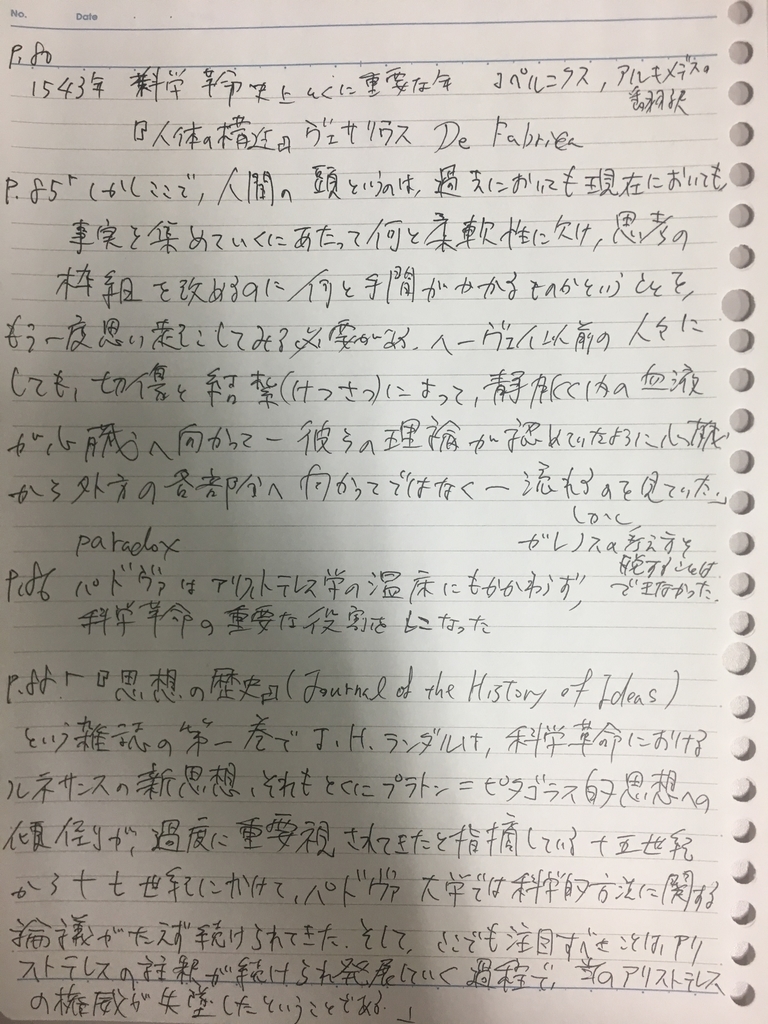 No.
Date
P.80
1543年 科学革命史上とくに重要な年 コペルニクス, アルキメデスの
翻訳
『人体の構造』ヴェサリウス De Fabrica
P.85「しかしここで, 人間の頭というのは, 過去においても現在においても
事実を集めていくにあたって何と柔軟性に欠け, 思考の
枠組を改めるのに何と手間がかかるものかということを,
もう一度思い起こしてみる必要がある. ハーヴェイ以前の人々に
しても, 切傷と結紮(けっさつ)によって, 静脈内の血液
が心臓へ向かって ー 彼らの理論が認めていたように心臓
から外方の各部分へ向かってではなく ー 流れるのを見ていた」
しかし
ガレノスの考え方を
脱することは
できなかった.
paradox
P.86 パドヴァはアリストテレス学の温床にもかかわらず,
科学革命の重要な役割をおこなった
P.88「『思想の歴史』(Journal of the History of Ideas)
という雑誌の第一巻でJ.H.ランダルは, 科学革命における
ルネサンスの新思想, それもとくにプラトン=ピタゴラス的思想への
傾倒が, 過度に重要視されてきたと指摘している 十五世紀
から十七世紀にかけて, パドヴァ大学では科学的方法に関する
論議がたえず続けられてきた. そして, ここでも注目すべきことは, アリ
ストテレスの註釈が続けられ発展していく過程で, 当のアリストテレス
の権威が失墜したということである.」